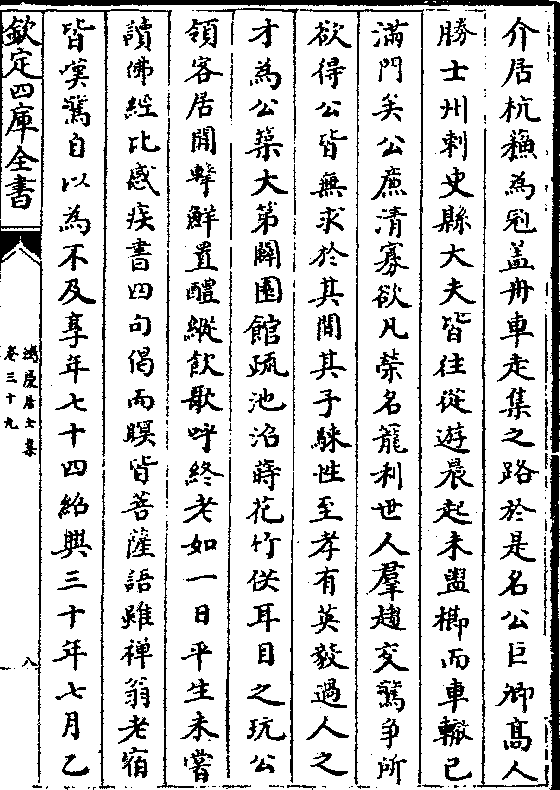 介居杭穐為冠蓋舟車走集之路於是名公巨卿髙人
勝士州刺史縣大夫皆往從遊晨起未盥櫛而車轍已
滿門矣公亷清寡欲凡榮名寵利世人羣趨交騖争所
欲得公皆無求於其間其子騋性至孝有英毅過人之
才為公築大第闢園館疏池沼蒔花竹供耳目之玩公
領客居閒擊鮮置醴縱飲歌呼終老如一日平生未嘗
讀佛經比感疾書四句偈而瞑皆菩薩語雖禪翁老宿
皆嘆驚自以為不及享年七十四紹興三十年七月乙
欽定四庫全書
鴻慶居士集
卷三十九
八